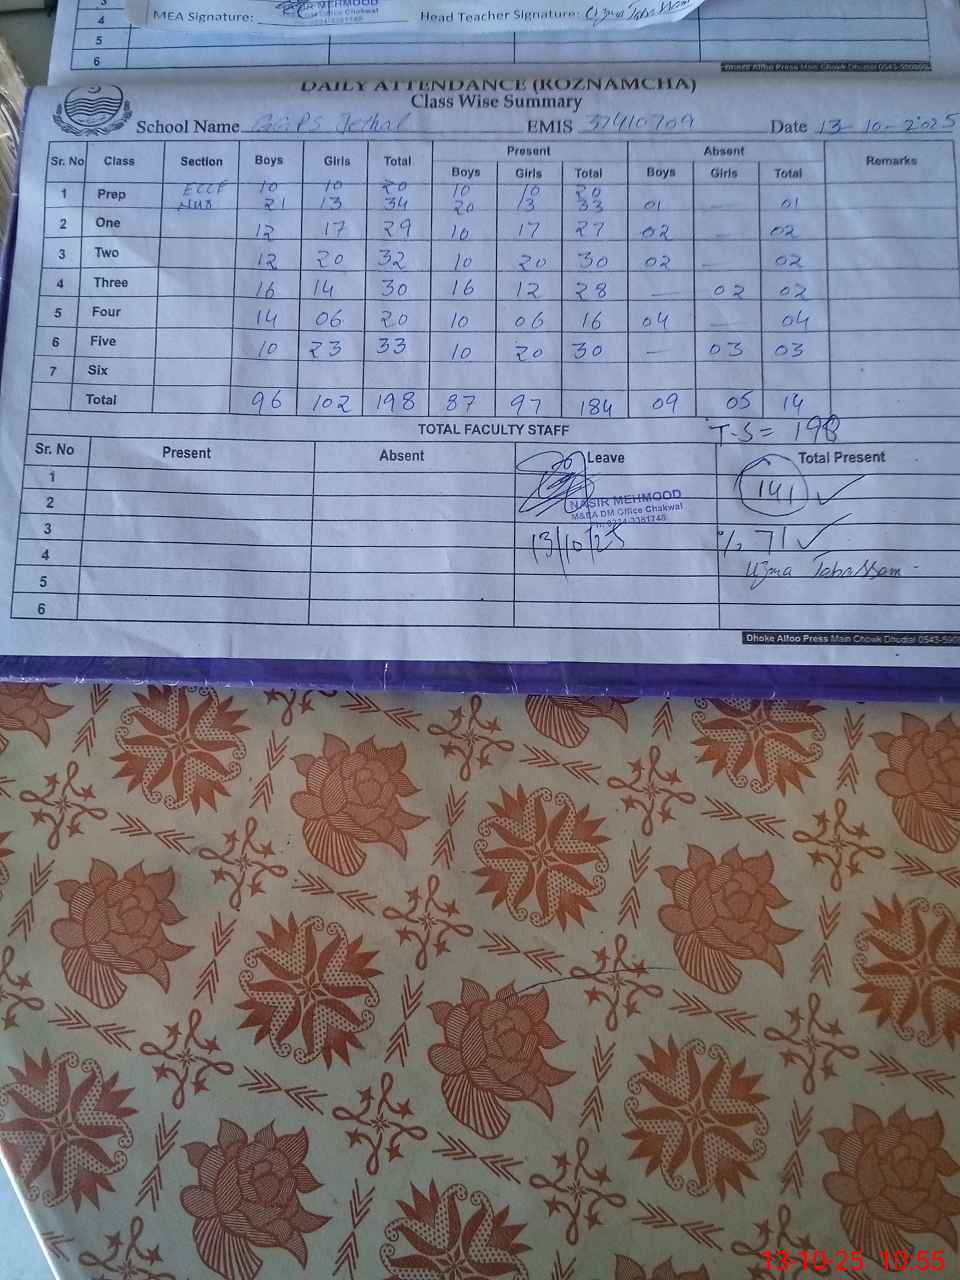 4
MEA Signature: Head Teacher Signature: Uzma Tabassam
5
6
Dhoke Alloo Press Main Chowk Dhudial 0543-590
DAILY ATTENDANCE (ROZNAMCHA)
Class Wise Summary
School Name GGPS Jethal EMIS 37410709 Date 13-10-2025
Present Absent
Sr. No Class Section Boys Girls Total Boys Girls Total Boys Girls Total Remarks
1 Prep ECCE 10 10 20 10 10 20
21 13 34 20 13 33 01 — 01
2 One 12 17 29 10 17 27 02 — 02
3 Two 12 20 32 10 20 30 02 — 02
4 Three 16 14 30 16 12 28 — 02 02
5 Four 14 06 20 10 06 16 04 — 04
6 Five 10 23 33 10 20 30 — 03 03
7 Six
Total 96 102 198 87 97 184 09 05 14
TOTAL FACULTY STAFF T.S = 198
Sr. No Present Absent Leave Total Present
1 141
2 NASIR MEHMOOD
M&EA DM Office Chakwal
3 13/10/25 % 71
4 Uzma Tabassam
5
6
Dhoke Alloo Press Main Chowk Dhudial 0543-590
13-10-25 10:55